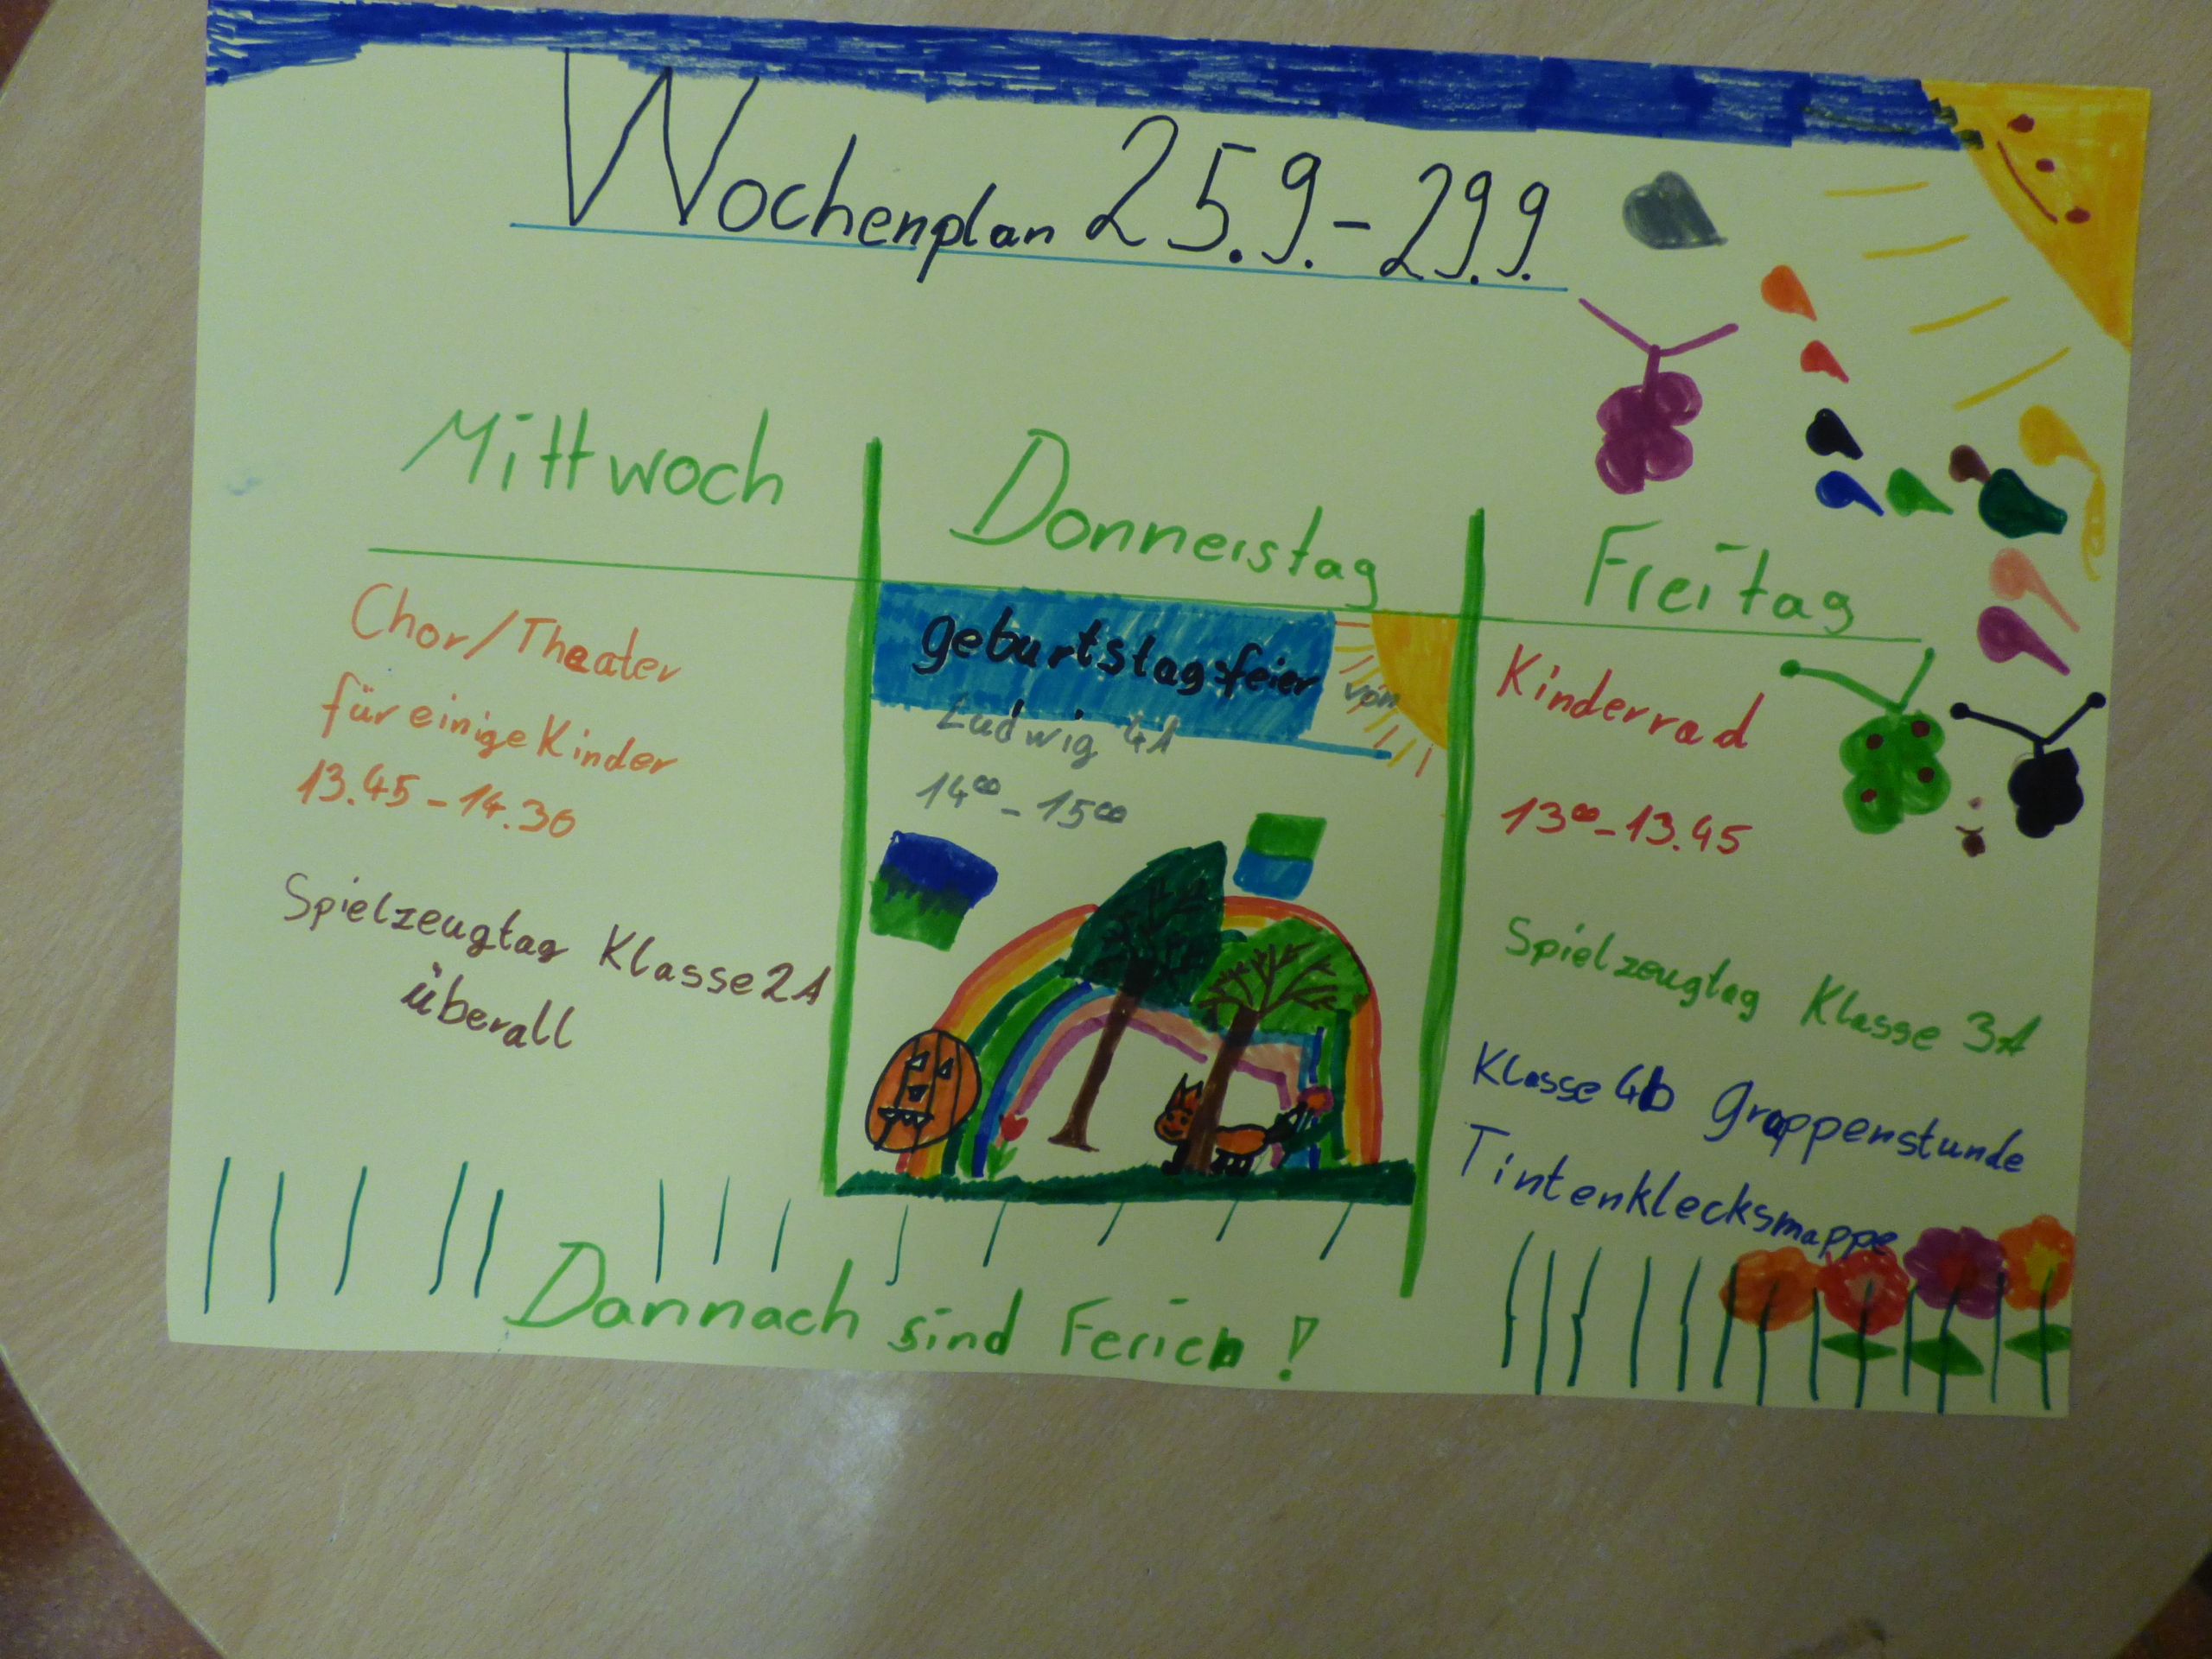 Wochenplan 25.9.-29.9.
Mittwoch
Chor/Theater
für einige Kinder
13.45-14.30
Spielzeugtag Klasse 2A
überall
Donnerstag
geburtstagsfeier von
Ludwig 4A
14⁰⁰-15⁰⁰
Freitag
Kinderrad
13⁰⁰-13.45
Spielzeugtag Klasse 3A
Klasse 4b Gruppenstunde
Tintenklecksmappe
Dannach sind Ferien!